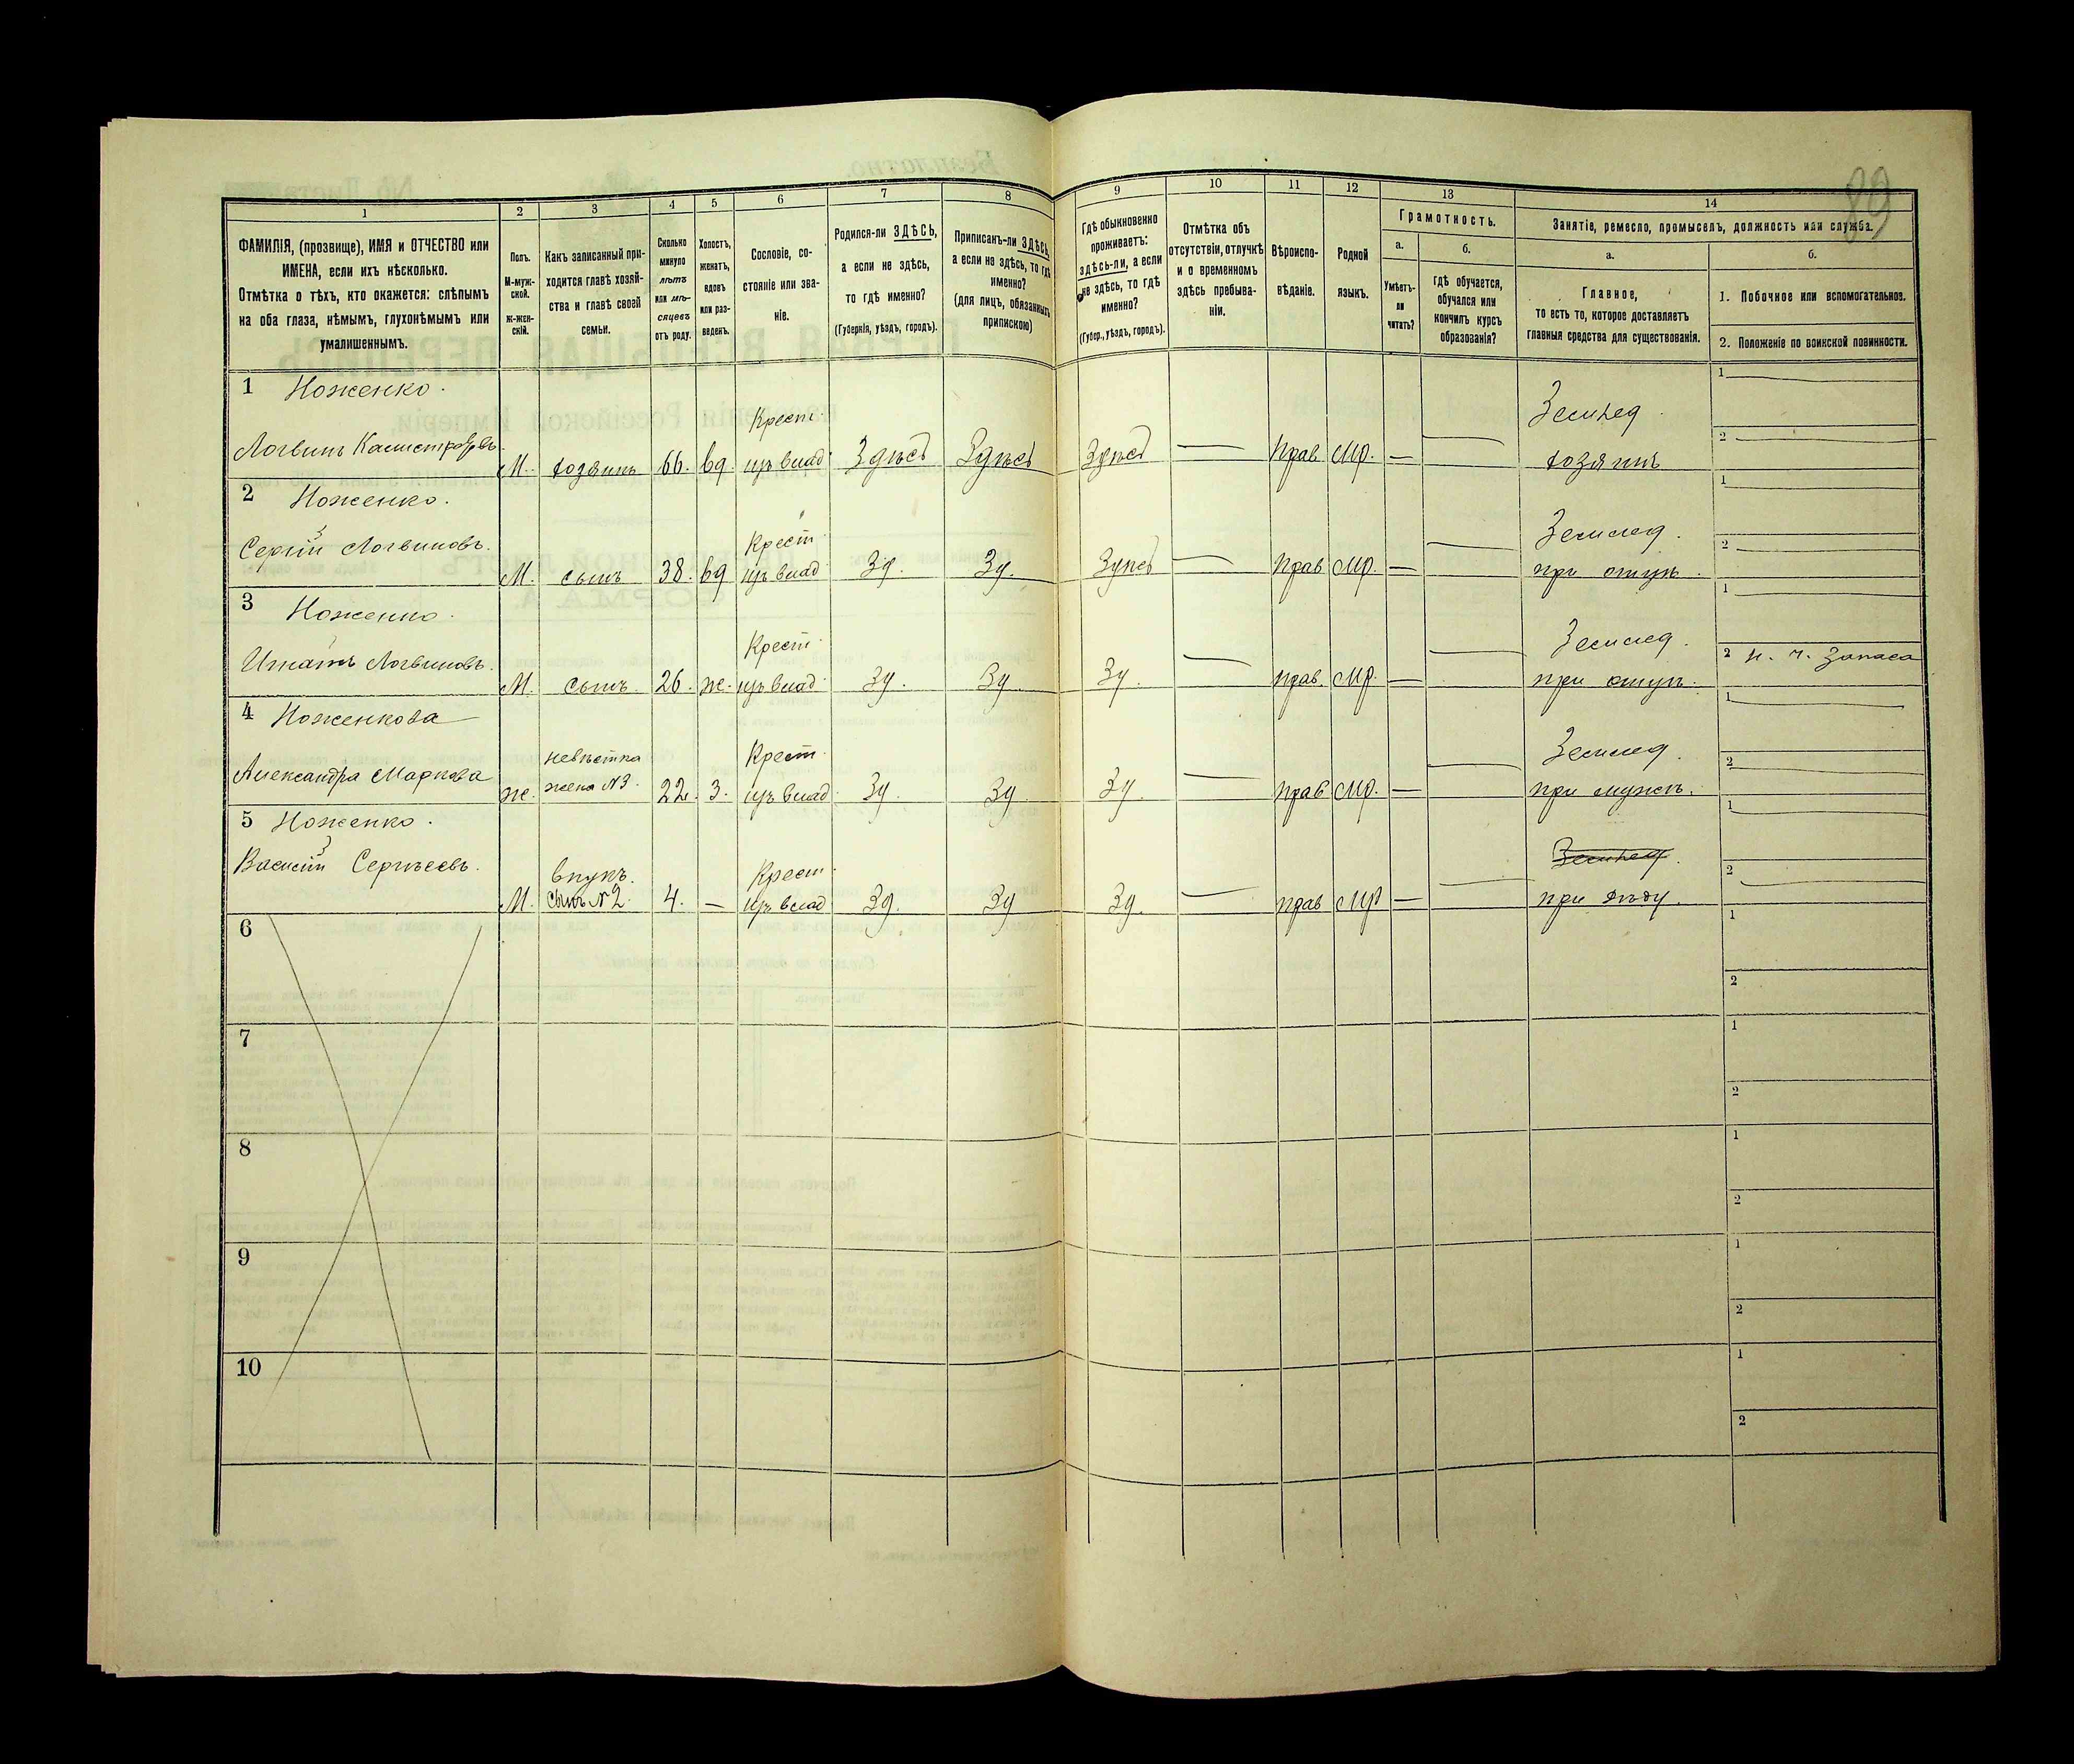 89
1 2 3 4 5 6 7 8 9 10 11 12 13 14
ФАМИЛІЯ, (прозвище), ИМЯ и ОТЧЕСТВО или
ИМЕНА, если ихъ нѣсколько.
Отмѣтка о тѣхъ, кто окажется: слѣпымъ
на оба глаза, нѣмымъ, глухонѣмымъ или
умалишеннымъ.
Полъ.
М-муж-
ской.
ж-жен-
скій.
Какъ записанный при-
ходится главѣ хозяй-
ства и главѣ своей
семьи.
Сколько
минуло
лѣтъ
или мѣ-
сяцевъ
отъ роду.
Холостъ,
женатъ,
вдовъ
или раз-
веденъ.
Сословіе, со-
стояніе или зва-
ніе.
Родился-ли ЗДѢСЬ,
а если не здѣсь,
то гдѣ именно?
(Губернія, уѣздъ, городъ).
Приписанъ-ли ЗДѢСЬ,
а если не здѣсь, то гдѣ
именно?
(для лицъ, обязанныхъ
припискою)
Гдѣ обыкновенно
проживаетъ:
здѣсь-ли, а если
не здѣсь, то гдѣ
именно?
(Губер., уѣздъ, городъ).
Отмѣтка объ
отсутствіи, отлучкѣ
и о временномъ
здѣсь пребыва-
ніи.
Вѣроиспо-
вѣданіе.
Родной
языкъ.
Грамотность.
а.
Умѣетъ-
ли
читать?
б.
Гдѣ обучается,
обучался или
кончилъ курсъ
образованія?
Занятіе, ремесло, промыселъ, должность или служба.
а.
Главное,
то есть то, которое доставляетъ
главныя средства для существованія.
б.
1. Побочное или вспомогательное.
2. Положеніе по воинской повинности.
1 Ноженко.
Крест. Землед. 1
Логвинъ Калистратовъ М. хозяинъ 66. вд. изъ влад. Здѣсь Здѣсь Здѣсь — Прав Мр. — — хозяинъ 2
2 Ноженко. 1
Сергій Логвиновъ. Крест. Землед.
М. сынъ 38. вд изъ влад. Зд. Зд. Здѣсь — Прав Мр. — — при отцѣ. 2
3 Ноженко. 1
Игнатъ Логвиновъ. Крест. Землед.
М. сынъ. 26. ж. изъ влад. Зд. Зд. Зд. — прав. Мр. — — при отцѣ. 2 н. ч. Запаса
4 Ноженкова 1
невѣстка Крест. Землед.
Александра Маркова ж. жена №3. 22. З. изъ влад. Зд. Зд. Зд. — прав Мр. — — при мужѣ. 2
5 Ноженко. 1
Василій Сергѣевъ. внукъ. Крест. Землед.
М. сынъ №2. 4. — изъ влад Зд. Зд Зд. — прав Мр — — при дѣду. 2
6 1
2
7 1
2
8 1
2
9 1
2
10 1
2